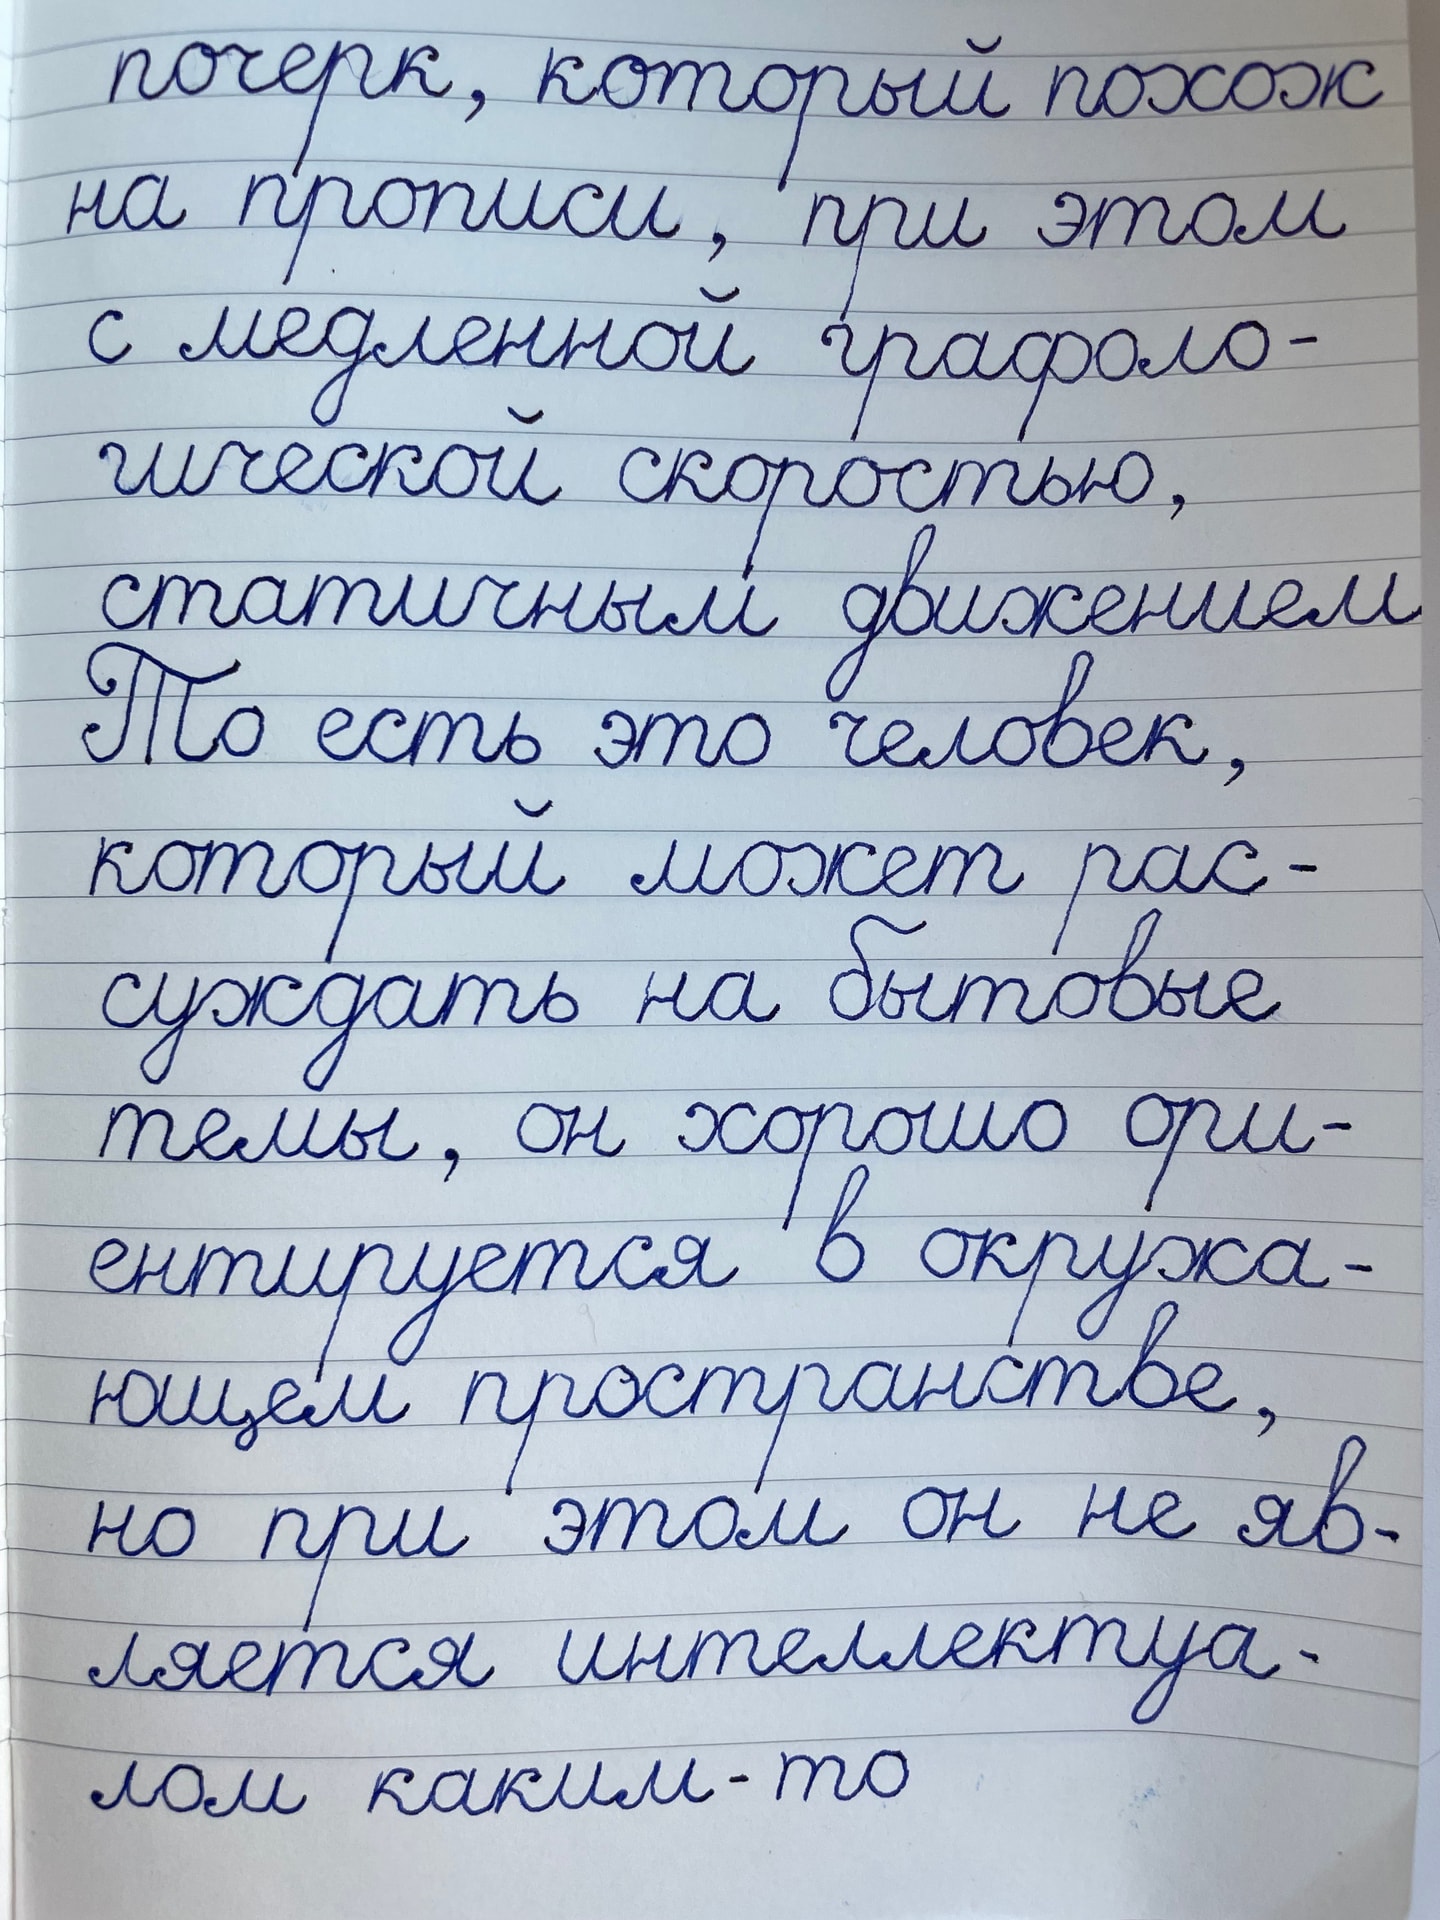 почерк, который похож
на прописи, при этом
с медленной графоло-
гической скоростью,
статичным движением
То есть это человек,
который может рас-
суждать на бытовые
темы, он хорошо ори-
ентируется в окружа-
ющем пространстве,
но при этом он не яв-
ляется интеллектуа-
лом каким-то